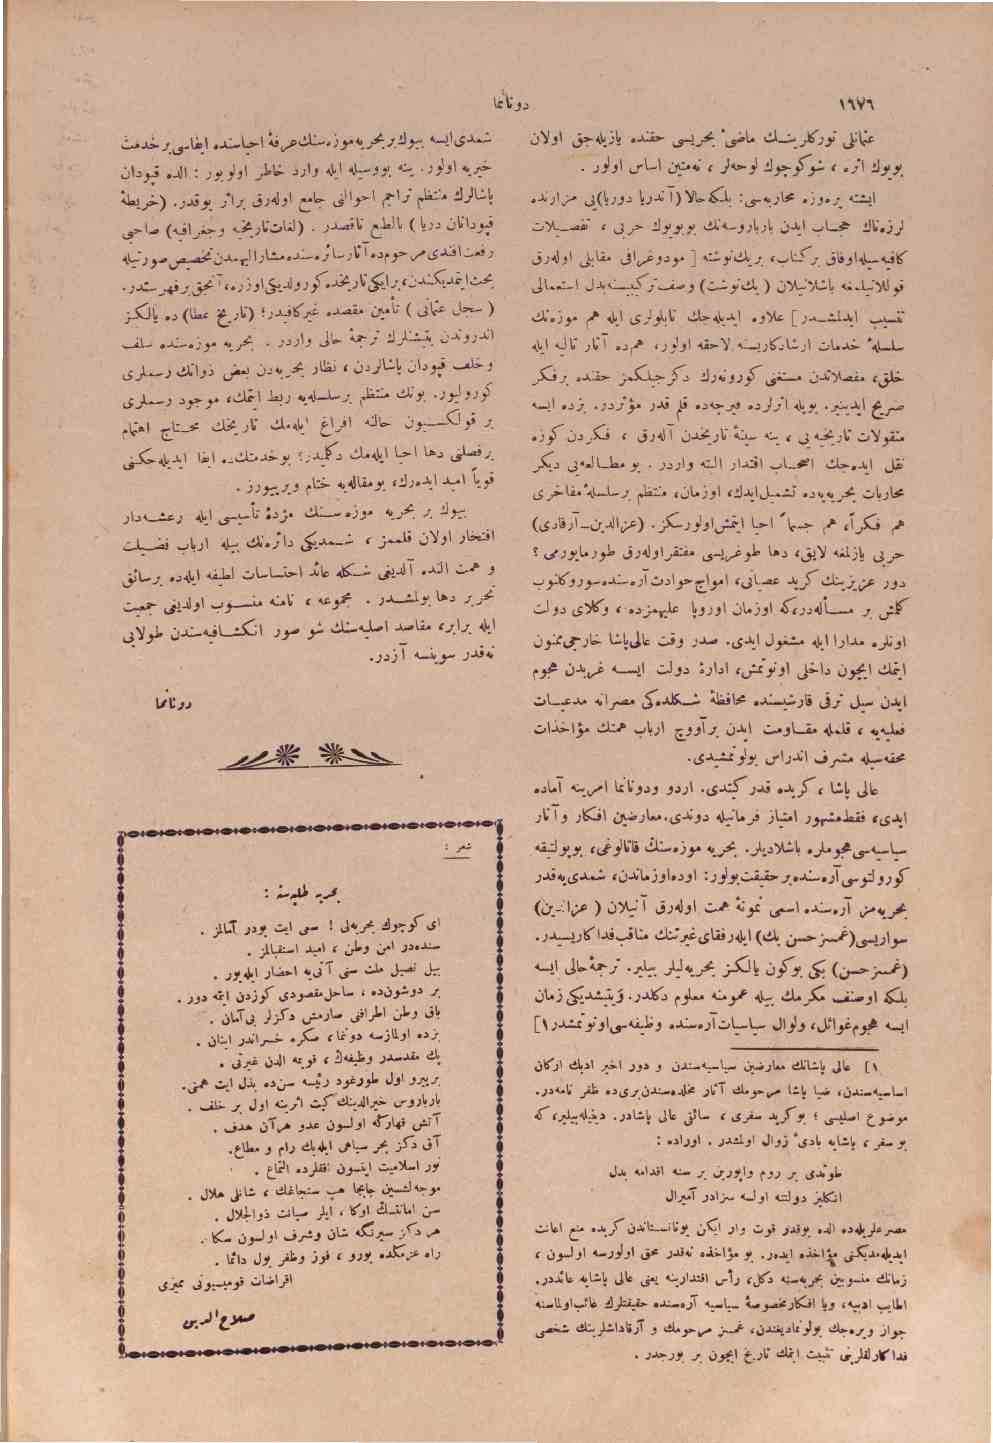 ١٦٧٦
دونانما
عثمانلی تورکلرینـك ماضیٔ بحریسی حقنده یازیله‌جق اولان
بویوك اثره ، شو کوچوك لوحه‌لر ، نه‌متین اساس اولور .
ایشته پره‌وزه محاربه‌سی: بلکه حالا (آندریا دوریا)یی مزارنده
لرزه‌ناك حجـاب ایدن بارباروسه‌نك بویوبوك حربی ، تفصـیلات
کافیه‌سیله اوفاق برکتاب، بریك‌نوشته [ مودوغرافی مقابلی اوله‌رق
قوللانیلمغه باشلانیلان ( یك‌نوشت) وصف ترکیبیسنه‌بدل استعمالی
تنسیب ایدلمشـدر] علاوه ایدیله‌جك تابلولری ایله هم موزه‌نك
سلسلهٔ خدمات ارشادکاریسنه لاحقه اولور، هم‌ده آثار تالیه ایله
خلق، مفصلاتدن مستغنی کورونه‌رك دکزجیلکمز حقنده برفکر
صریح ایدینیر. بویله اثرلرده فیرچه‌ده قلم قدر مؤثردر. بزده ایسه
منقولات تاریخیه‌یی ، ینه سینهٔ تاریخدن آله‌رق ، فکردن کوزه
نقل ایده‌جك اصحـاب اقتدار البته واردر . بو مطـالعه‌یی دیکر
محاربات بحریه‌یه‌ده تشمیل ایدك، اوزمان، منتظم برسلسلهٔ مفاخری
هم فکراً، هم جسماً احیا ایتمش اولورسکز. (عزالدین-آرقادی)
حربی یازلمغه لایق، دها طوغریسی مفتقر اوله‌رق طورمایورمی ؟
دور عزیزینك کرید عصیانی، امواج حوادث آره‌سنده سوروکلنوب
کلمش بر مسـأله‌در، که اوزمان اوروپا علیهمزده ، وکلای دولت
اونلره مدارا ایله مشغول ایدی. صدر وقت عالی‌پاشا خارجی‌ممنون
ایتمك ایچون داخلی اونوتمش، ادارهٔ دولت ایسـه غربدن هجوم
ایدن سیل ترقی قارشیسنده محافظهٔ شـکلده‌کی مصرانه مدعیـات
فعلیه‌یه ، قلمله مقـاومت ایدن برآووچ ارباب همتك مؤاخذات
محقه‌سیله مشرف اندراس بولونمشیدی.
عالی پاشا ، کریده قدر کیتدی. اردو ودونانما امرینه آماده
ایدی، فقط مشهور امتیاز فرمانیله دوندی. معارضین افکار و آثار
سیاسیه‌سی هجوملره باشلادیلر. بحریه موزه‌سنك قاتالوغی، بوپولتیقه
کورولتوسی آره‌سنده برحقیقت بولور: اوده اوزماندن، شمدی‌یه‌قدر
بحریه‌مز آره‌سنده اسمی نمونهٔ همت اوله‌رق آنیلان ( عزالدین)
سواریسی(غمسزحسن بك) ایله رفقای غیرتنك مناقب فداکاریسیدر.
(غمسزحسن) بکی بوکون یالکز بحریه‌لیلر بیلیر. ترجمهٔ حالی ایسه
بلکه اوصنف مکرمك بیله عمومنه معلوم دکلدر. ویتیشدیکی زمان
ایسه هجوم غوائل، ولوال سیاسیات آره‌سنده وظیفه‌سی اونوتمشدر ١]
١] عالی پاشانك معارضین سیاسیه‌سندن و دور اخیر ادبك ارکان
اساسیه‌سندن، ضیا پاشا مرحومك آثار مخلده‌سندن بری‌ده ظفر نامه‌در.
موضوع اصلیسی ؛ بوکرید سفری ، سائق عالی پاشادر. دینیله‌بیلیر، که
بو سفر ، پاشایه بادیٔ زوال اولمشدر . اوراده :
طوتدی بر روم واپورین بر سنه اقدامه بدل
انکلیز دولتنه اولسه سزادر آمیرال
مصرعلریله‌ده الده بوقدر قوت وار ایکن یونانستاندن کریده منع اعانت
ایدیله‌مدیکنی مؤاخذه ایده‌ر. بو مؤاخذه نه‌قدر محق اولورسه اولسون ،
زمانك منسوبین بحریه‌سنه دکل، رأس اقتدارینه یعنی عالی پاشایه عائددر.
اطایب ادبیه، ویا افکار مخصوصهٔ سیاسیه آره‌سنده حقیقتلرك غائب اولماسنه
جواز ویره‌جك بولونمادیغندن، غمسز مرحومك و آرقاداشلرینك شخصی
فداکارلقلرینی تثبیت ایتمك تاریخ ایچون بر بورجدر .
شمدی ایسه بیوك بر بحریه موزه‌سنك هرفهٔ احیاسنده ایفاسی بر خدمت
خیریه اولور. ینه بووسیله ایله وارد خاطر اولویور : الده قپودان
پاشالرك منتظم تراجم احوالنی جامع اوله‌رق براثر یوقدر. (خریطهٔ
قپودانان دریا) بالطبع ناقصدر . (لغات تاریخیه وجغرافیه) صاحبی
رفعت افندی مرحوم‌ده آثار سائره‌سنده مشارالیهمدن تخصیص صورتیله
بحث ایتمدیکندن، برایکی تاریخده کورولدیکی اوزره، آنجق برفهرستدر.
( سجل عثمانی ) تأمین مقصده غیرکافیدر؛ (تاریخ عطا) ده یالکز
اندروندن یتیشنلرك ترجمهٔ حالی واردر . بحریه موزه‌سنده سلف
وخلف قپودان پاشالردن ، نظار بحریه‌دن بعض ذواتك رسملری
کورولیور. بونك منتظم برسلسله‌یه ربط ایتمك، موجود رسملری
بر قولکسـیون حالنه افراغ ایله‌مك تاریخك محـتاج اهتمام
برفصلنی دها احیا ایله‌مك دکلیدر؟ بوخدمتك‌ده ایفا ایدیله‌جکنی
قویاً امید ایده‌رك، بومقاله‌یه ختام ویرییورز .
بیوك بر بحریه موزه سـنك مژدهٔ تأسیسی ایله رعشـه‌دار
افتخار اولان قلممز ، شـمدیکی دائره‌نك بیله ارباب فضـیلت
و همت النده آلدیغی شـکله عائد احتساسات لطیفه ایله‌ده برسائق
تحریر دها بولمشـدر . مجموعه ، نامنه منسـوب اولدیغی جمعیت
ایله برابر، مقاصد اصلیه‌سنك شو صور انکشـافیه‌سندن طولایی
نه‌قدر سوینسه آزدر.
دونانما
شعر :
بحریه طلبه‌سنه :
ای کوچوك بحریه‌لی ! سعی ایت بودر آمالمز .
سنده‌در امن وطن ، امید استقبالمز .
بیل نصیل ملت سنی آتی‌یه احضار ایله‌یور .
بر دوشون‌ده ، ساحل مقصودی کوزدن ایتمه دور .
باق وطن اطرافی صارمش دکزلر بی‌آمان .
بزده اولمازسه دونمَا، صکره خسراندر اینان .
پك مقدسدر وظیفه‌ك ، قویمه الدن غیرتی .
پیرو اول طورغود رئیسه سن‌ده بذل ایت همتی.
بارباروس خیرالدینك کیت اثرینه اول بر خلف .
آتش قهارکه اولسون عدو هرآن هدف .
آق دکز بحر سیاهی ایله‌یك رام و مطاع.
نور اسلامیت ایتسون افقلرده التماع .
موجه‌لنسین جابجا هپ سنجاغك ، شانلی هلال .
سن امانتسك اوکا ، ایلر صیانت ذوالجلال .
هر دکز سیرنکه شان وشرف اولسون سکا .
راه عزمکده یورو ، فوز وظفر بول دائما .
اقراضات قومیسیونی ممیزی
صلاح الدین